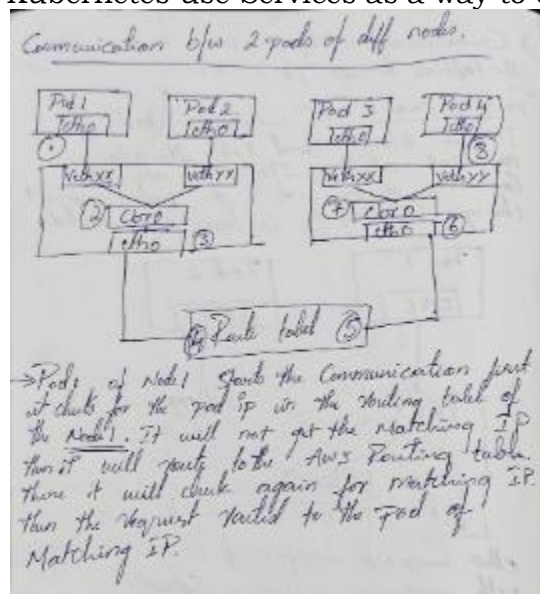 Kubernetes use Services as a way to
Communication b/w 2 pods of diff nodes.
Pod 1 Pod 2 Pod 3 Pod 4
etho etho etho etho
① ⑧
Vethxx Vethyy Vethxx Vethyy
② Cbro ⑦ Cbro
etho ③ etho ⑥
④ Route tabel ⑤
→ Pod1 of Node1 starts the Communication first
it checks for the pod ip in the routing tabel of
the Node1. It will not get the Matching IP
then it will route to the Aws Routing table.
there it will check again for matching IP.
then the request routed to the Pod of
Matching IP.